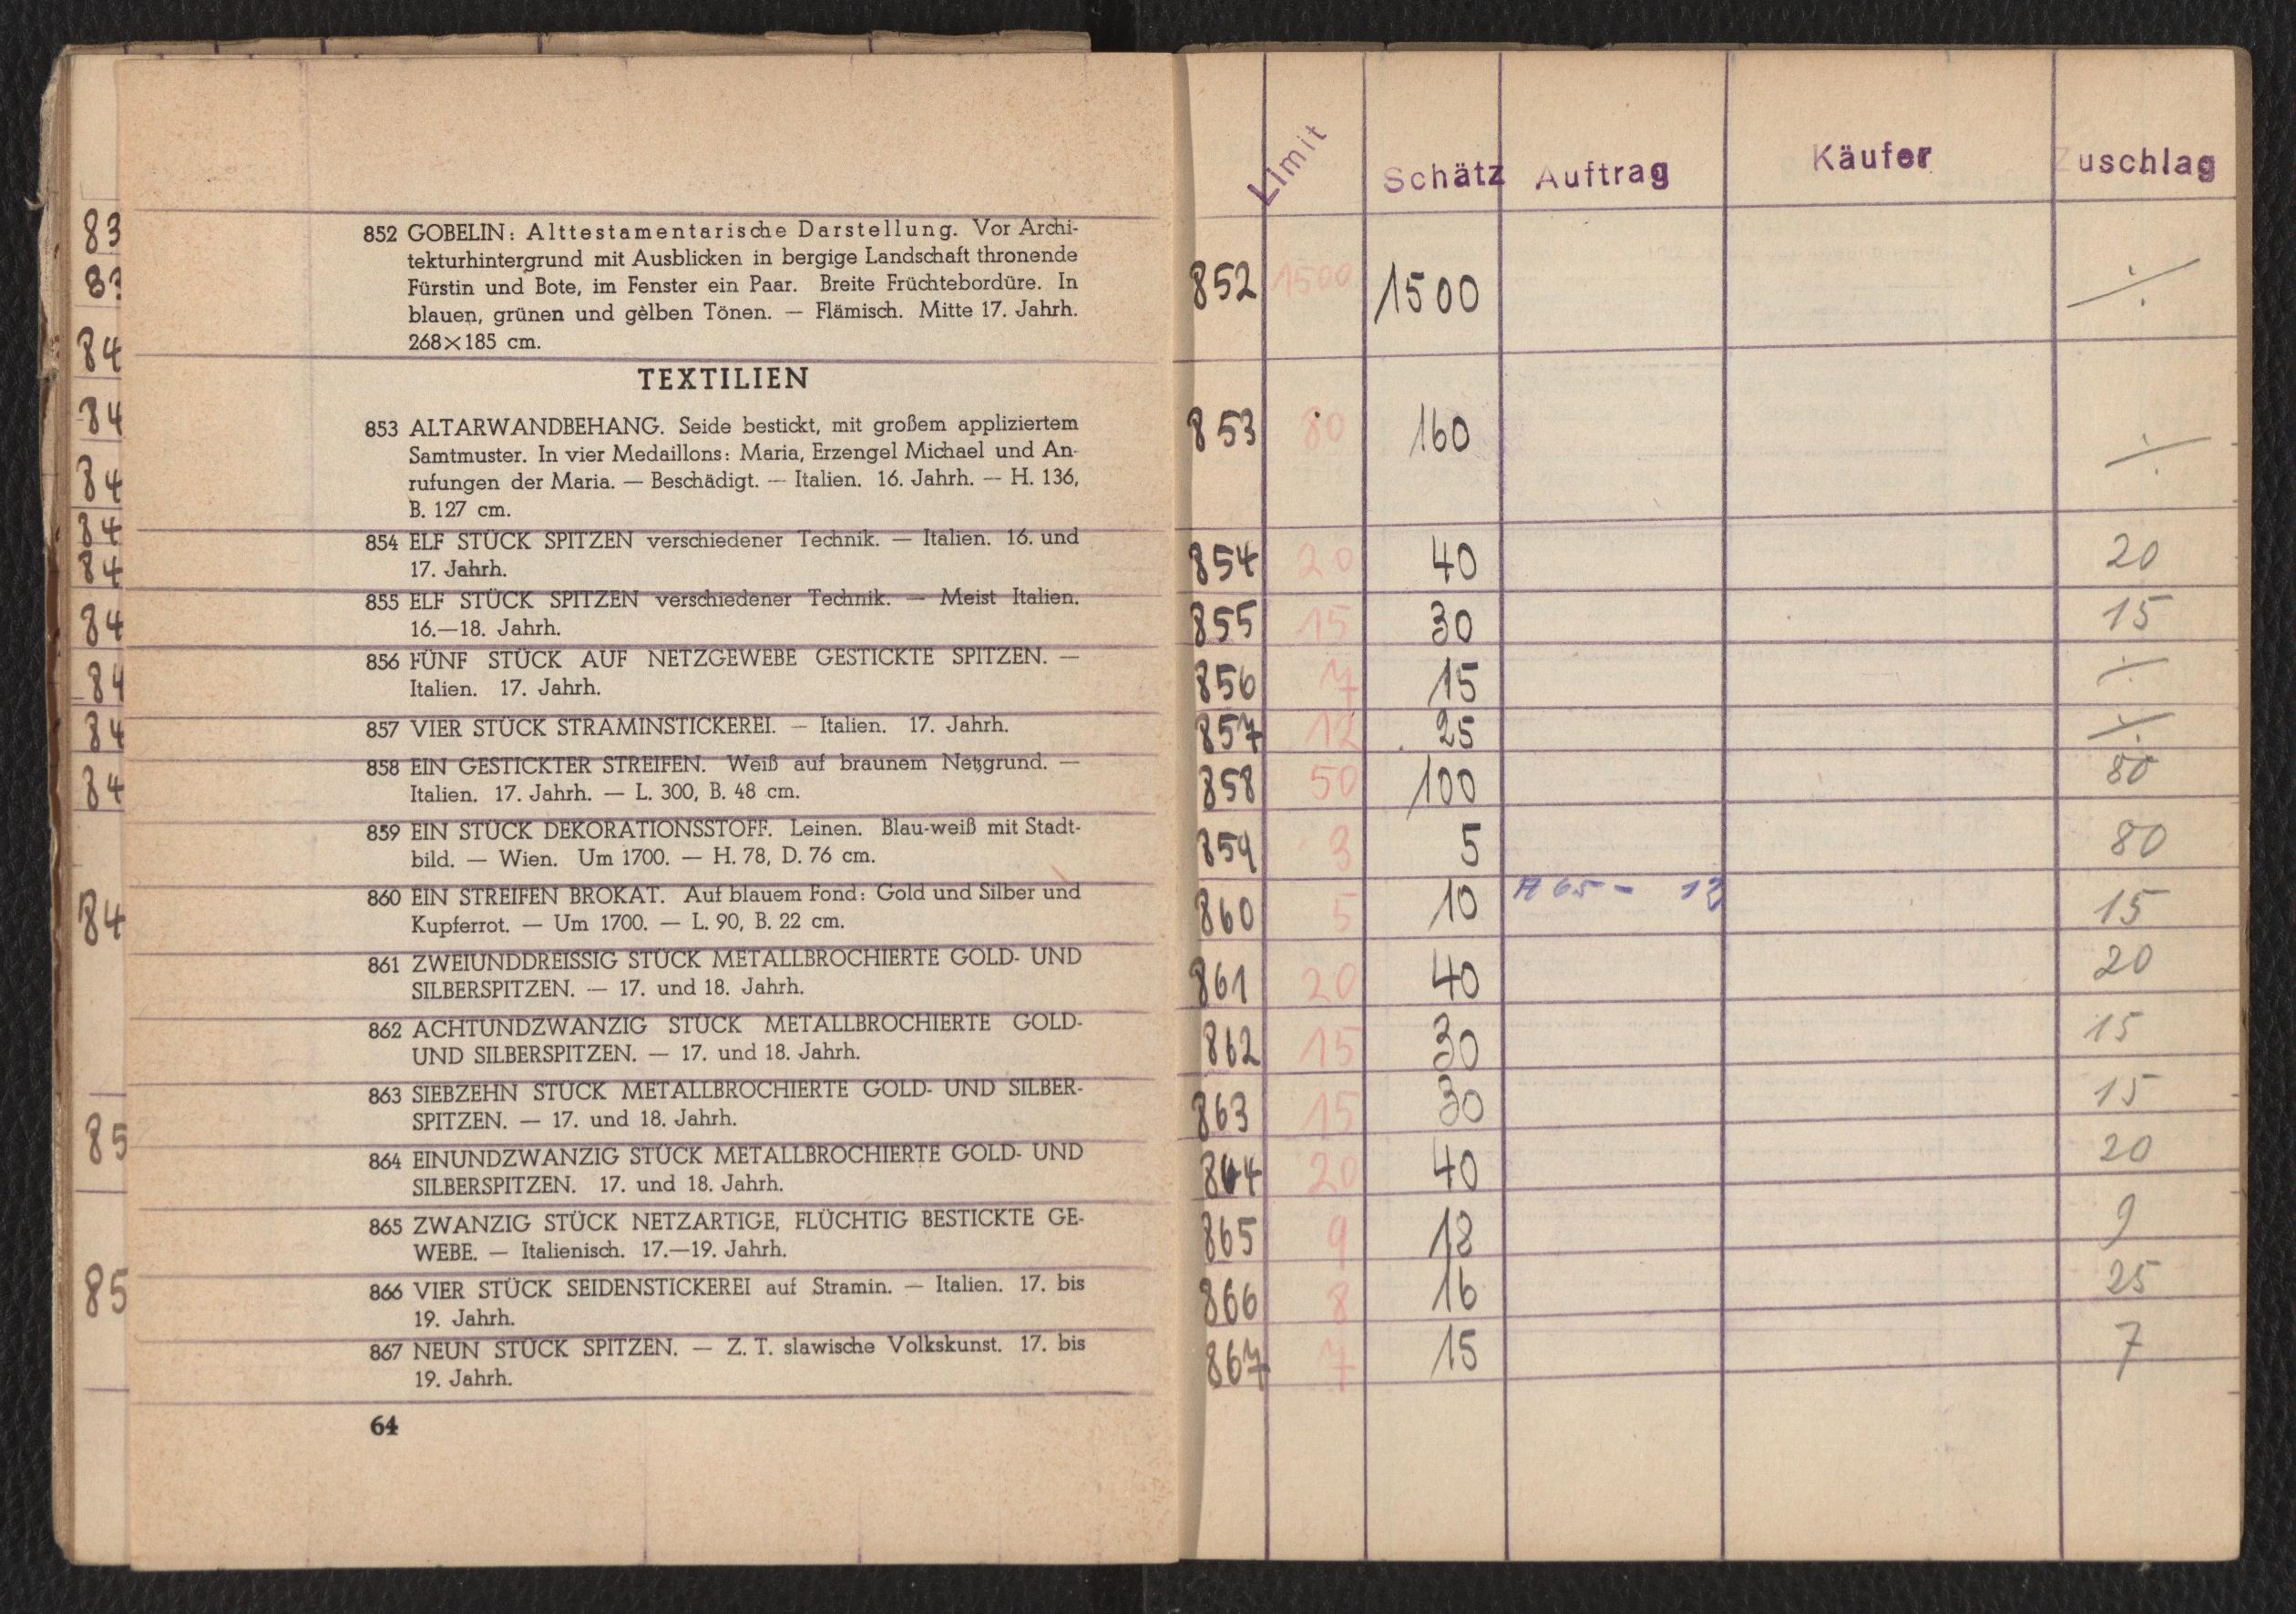 83
83
84
84
84
84
84
84
84
84
84
84
85
85
852 GOBELIN: Alttestamentarische Darstellung. Vor Archi-
tekturhintergrund mit Ausblicken in bergige Landschaft thronende
Fürstin und Bote, im Fenster ein Paar. Breite Früchtebordüre. In
blauen, grünen und gelben Tönen. — Flämisch. Mitte 17. Jahrh.
268×185 cm.
TEXTILIEN
853 ALTARWANDBEHANG. Seide bestickt, mit großem appliziertem
Samtmuster. In vier Medaillons: Maria, Erzengel Michael und An-
rufungen der Maria. — Beschädigt. — Italien. 16. Jahrh. — H. 136,
B. 127 cm.
854 ELF STÜCK SPITZEN verschiedener Technik. — Italien. 16. und
17. Jahrh.
855 ELF STÜCK SPITZEN verschiedener Technik. — Meist Italien.
16.—18. Jahrh.
856 FÜNF STÜCK AUF NETZGEWEBE GESTICKTE SPITZEN. —
Italien. 17. Jahrh.
857 VIER STÜCK STRAMINSTICKEREI. — Italien. 17. Jahrh.
858 EIN GESTICKTER STREIFEN. Weiß auf braunem Netzgrund. —
Italien. 17. Jahrh. — L. 300, B. 48 cm.
859 EIN STÜCK DEKORATIONSSTOFF. Leinen. Blau-weiß mit Stadt-
bild. — Wien. Um 1700. — H. 78, D. 76 cm.
860 EIN STREIFEN BROKAT. Auf blauem Fond: Gold und Silber und
Kupferrot. — Um 1700. — L. 90, B. 22 cm.
861 ZWEIUNDDREISSIG STÜCK METALLBROCHIERTE GOLD- UND
SILBERSPITZEN. — 17. und 18. Jahrh.
862 ACHTUNDZWANZIG STÜCK METALLBROCHIERTE GOLD-
UND SILBERSPITZEN. — 17. und 18. Jahrh.
863 SIEBZEHN STÜCK METALLBROCHIERTE GOLD- UND SILBER-
SPITZEN. — 17. und 18. Jahrh.
864 EINUNDZWANZIG STÜCK METALLBROCHIERTE GOLD- UND
SILBERSPITZEN. 17. und 18. Jahrh.
865 ZWANZIG STÜCK NETZARTIGE, FLÜCHTIG BESTICKTE GE-
WEBE. — Italienisch. 17.—19. Jahrh.
866 VIER STÜCK SEIDENSTICKEREI auf Stramin. — Italien. 17. bis
19. Jahrh.
867 NEUN STÜCK SPITZEN. — Z. T. slawische Volkskunst. 17. bis
19. Jahrh.
64
Limit Schätz Auftrag Käufer Zuschlag
852 1500 1500 ⁒
853 80 160 ⁒
854 20 40 20
855 15 30 15
856 7 15 ⁒
857 12 25 ⁒
858 50 100 80
859 3 5 80
860 5 10 A 65 - 13 15
861 20 40 20
862 15 30 15
863 15 30 15
864 20 40 20
865 9 18 9
866 8 16 25
867 7 15 7